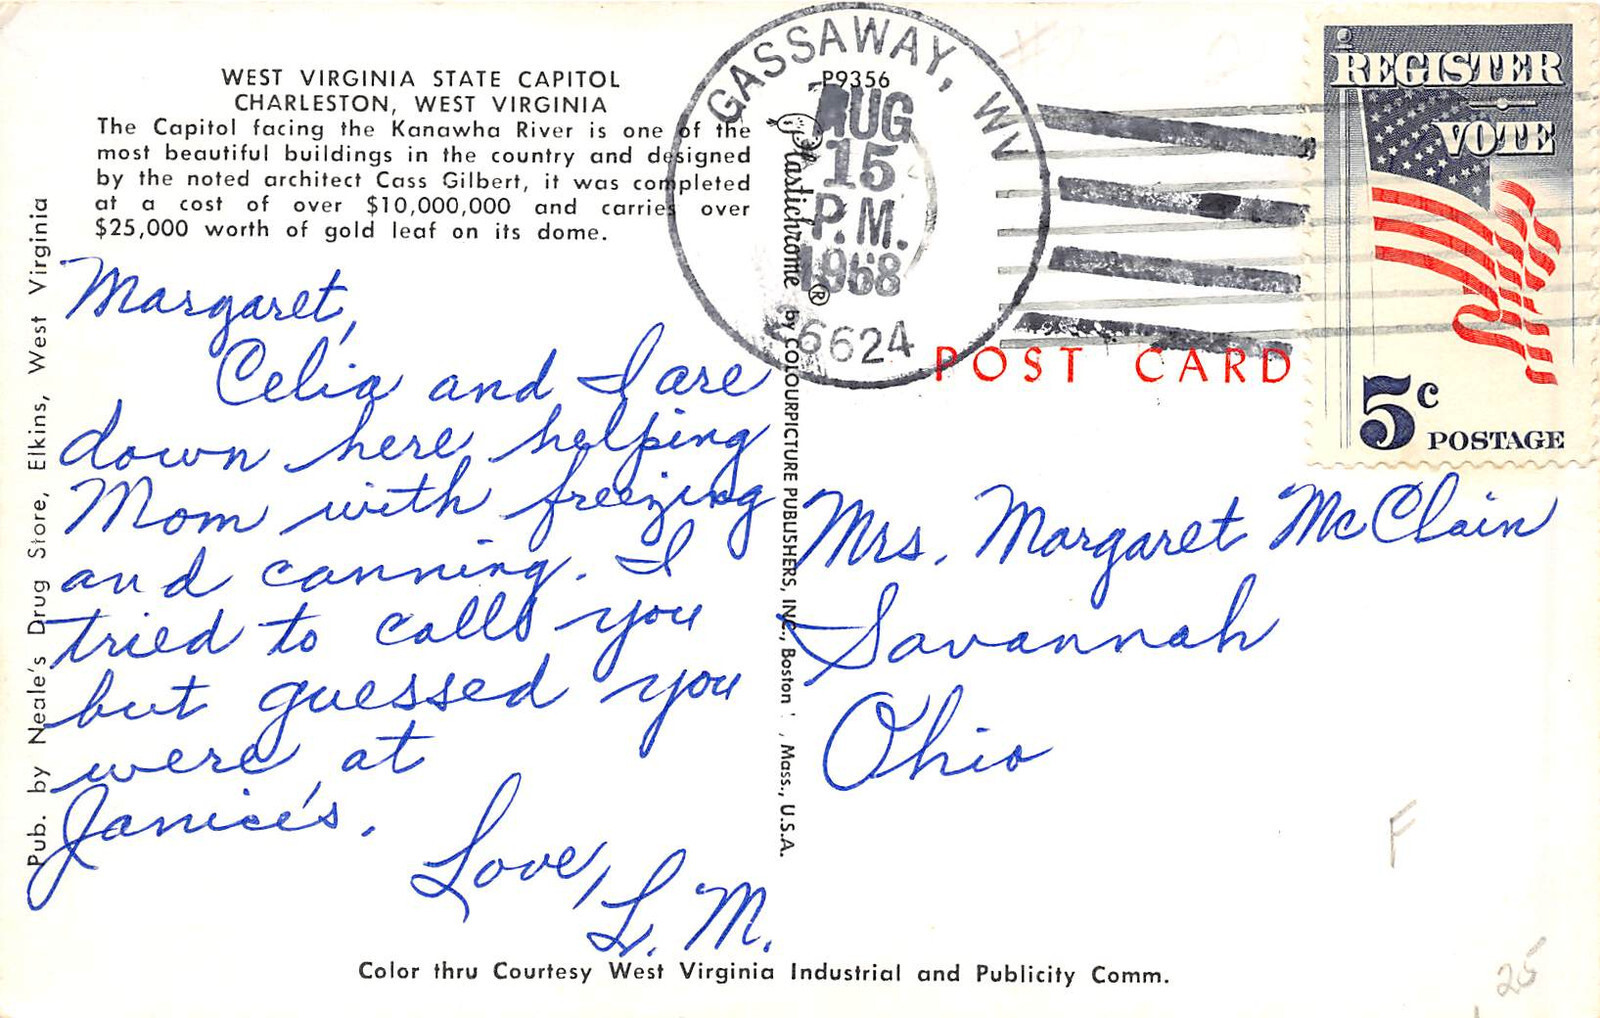 WEST VIRGINIA STATE CAPITOL
CHARLESTON, WEST VIRGINIA
The Capitol facing the Kanawha River is one of the
most beautiful buildings in the country and designed
by the noted architect Cass Gilbert, it was completed
at a cost of over $10,000,000 and carries over
$25,000 worth of gold leaf on its dome.
Margaret,
Celia and I are
down here helping
Mom with freezing
and canning. I
tried to call you
but guessed you
were at
Janice's.
Love,
L. M.
Pub. by Neale's Drug Store, Elkins, West Virginia
P9356
Plastichrome ® by COLOURPICTURE PUBLISHERS, INC., Boston , Mass., U.S.A.
GASSAWAY, WV
AUG
15
P.M.
1968
26624
REGISTER
VOTE
5c POSTAGE
POST CARD
Mrs. Margaret McClain
Savannah
Ohio
F
25
Color thru Courtesy West Virginia Industrial and Publicity Comm.